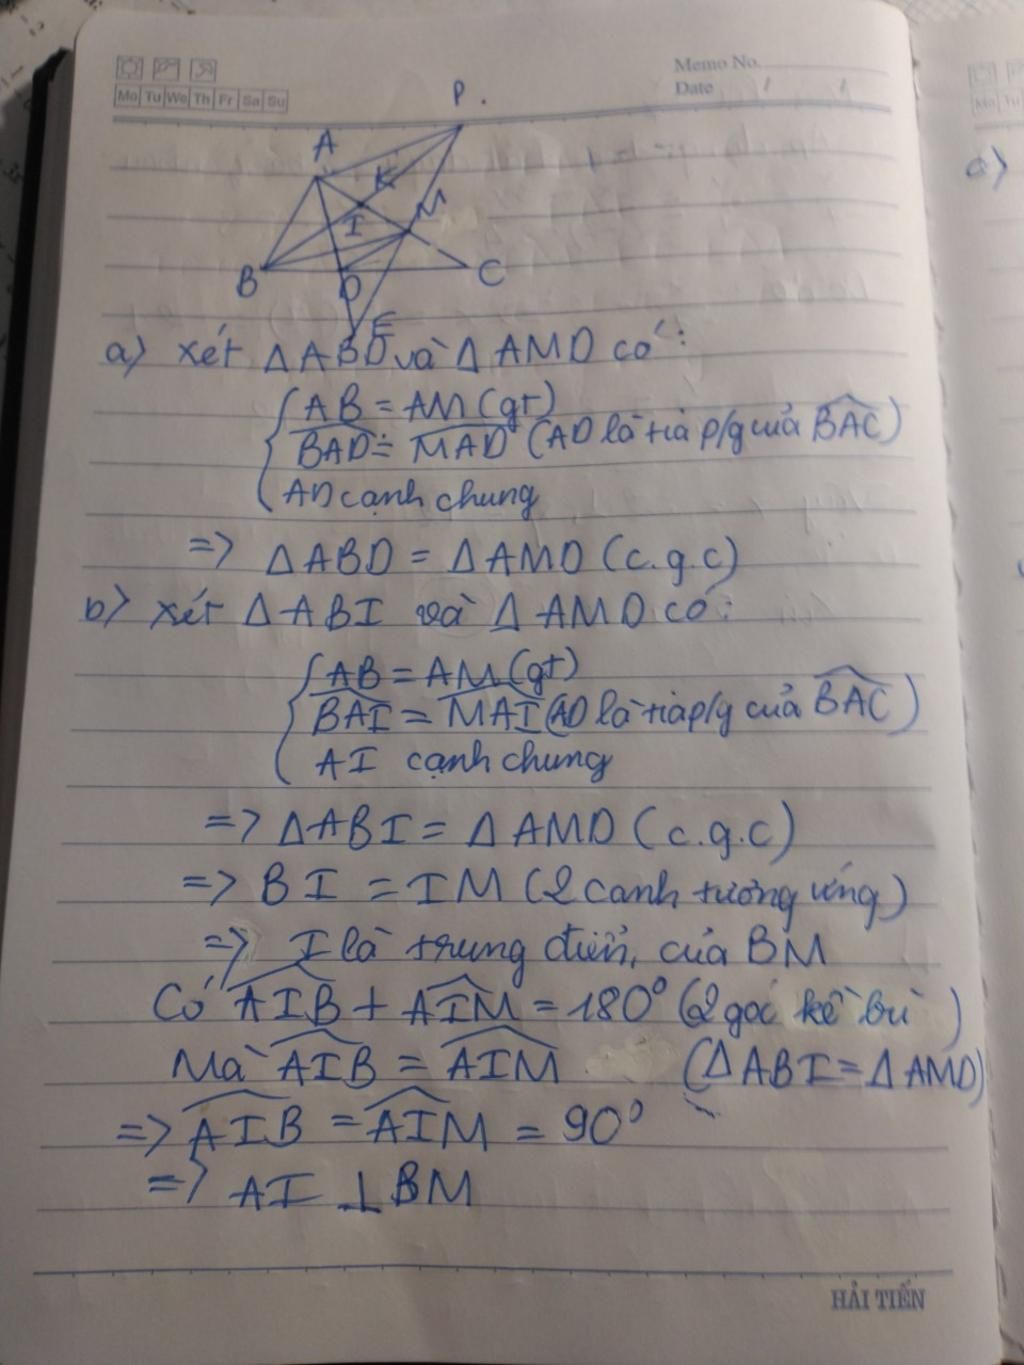 Memo No.
Mo Tu We Th Fr Sa Su
Date / /
P.
A
K
M
I
B
D
C
E
a) xét ΔABD và Δ AMD có:
AB = AM (gt)
BAD = MAD (AD là tia p/g của BAC)
AD cạnh chung
=> ΔABD = ΔAMD (c.g.c)
b) xét ΔABI và Δ AMD có:
AB = AM (gt)
BAI = MAI (AD là tia p/g của BAC)
AI cạnh chung
=> ΔABI = Δ AMD (c.g.c)
=> BI = IM (2 cạnh tương ứng)
=> I là trung điểm, của BM
Có AIB + AIM = 180° (2 góc kề bù)
Mà AIB = AIM (ΔABI = Δ AMD)
=> AIB = AIM = 90°
=> AI ⊥ BM
HẢI TIẾN
a)